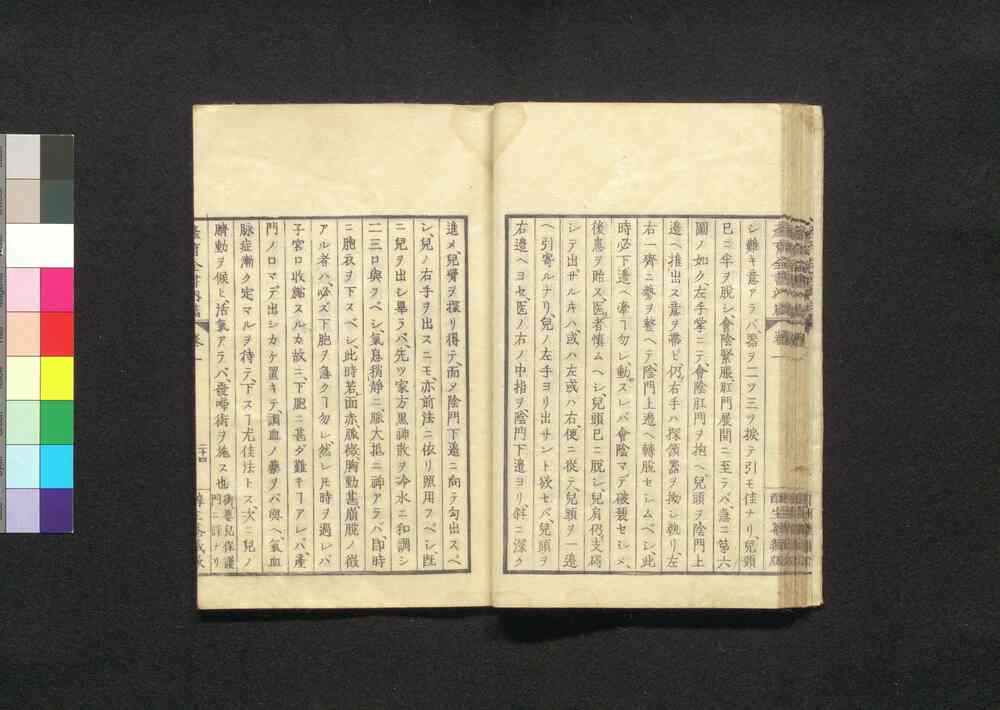 シ難キ意アラバ、器ヲ一ツ三ヲ捩テ引モ佳ナリ、兒頭
已ニ半ヲ脱シ、會陰緊脹肛門展開ニ至ラバ、急ニ第六
圖ノ如ク左手掌ニテ、會陰肛門ヲ抱ヘ兒頭ヲ陰門上
邉ヘ推出ス意ヲ帶ビ、仍右手ハ探頷器ヲ拗シ執リ、左
右一齊ニ勢ヲ整ヘテ、陰門上邉ヘ轉脱セシムベシ、此
時必下邉ヘ牽ヿ勿レ、動スレバ會陰マデ破裂セシメ、
後患ヲ貽ス、医者慎ムヘシ、兒頭已ニ脱シ、兒肩仍支碍
シテ出ザルキハ或ハ左或ハ右、便ニ從テ、兒頭ヲ一邉
ヘ引寄ルナリ、兒ノ左手ヨリ出サント欲セバ、兒頭ヲ
右邉ヘヨセ、医ノ右ノ中指ヲ、陰門下邉ヨリ、斜ニ深ク
進メ、兒臂ヲ探リ得テ、面メ陰門下邉ニ向テ勾出スベ
シ、兒ノ右手ヲ出スニモ、亦前法ニ依リ照用フベシ、既
ニ兒ヲ出シ畢ラバ、先ツ家方黒神散ヲ冷水ニ和調シ
二三口與ヲベシ、氣息稍静ニ、脈大抵ニ神アラバ、即時
ニ胞衣ヲ下スベシ、此時若、面赤、脈微、胸動甚、崩脱ノ徴
アル者ハ、必ズ下胞ヲ急クヿ勿レ、然レ𪜈時ヲ過レバ
子宮口收縮スルカ故ニ、下胞ニ甚ダ難キヿアレバ、産
門ノ口マデ出シカケ置キテ、調血ノ藥ヲバ與ヘ、氣血
脉症漸ク定マルヲ待テ、下スヿ尤佳法トス、次ニ兒ノ
臍動ヲ候ヒ、活氣アラバ、發啼術ヲ施ス也
術ハ嬰兒保護
門ニ詳ナリ
卷一
二十四